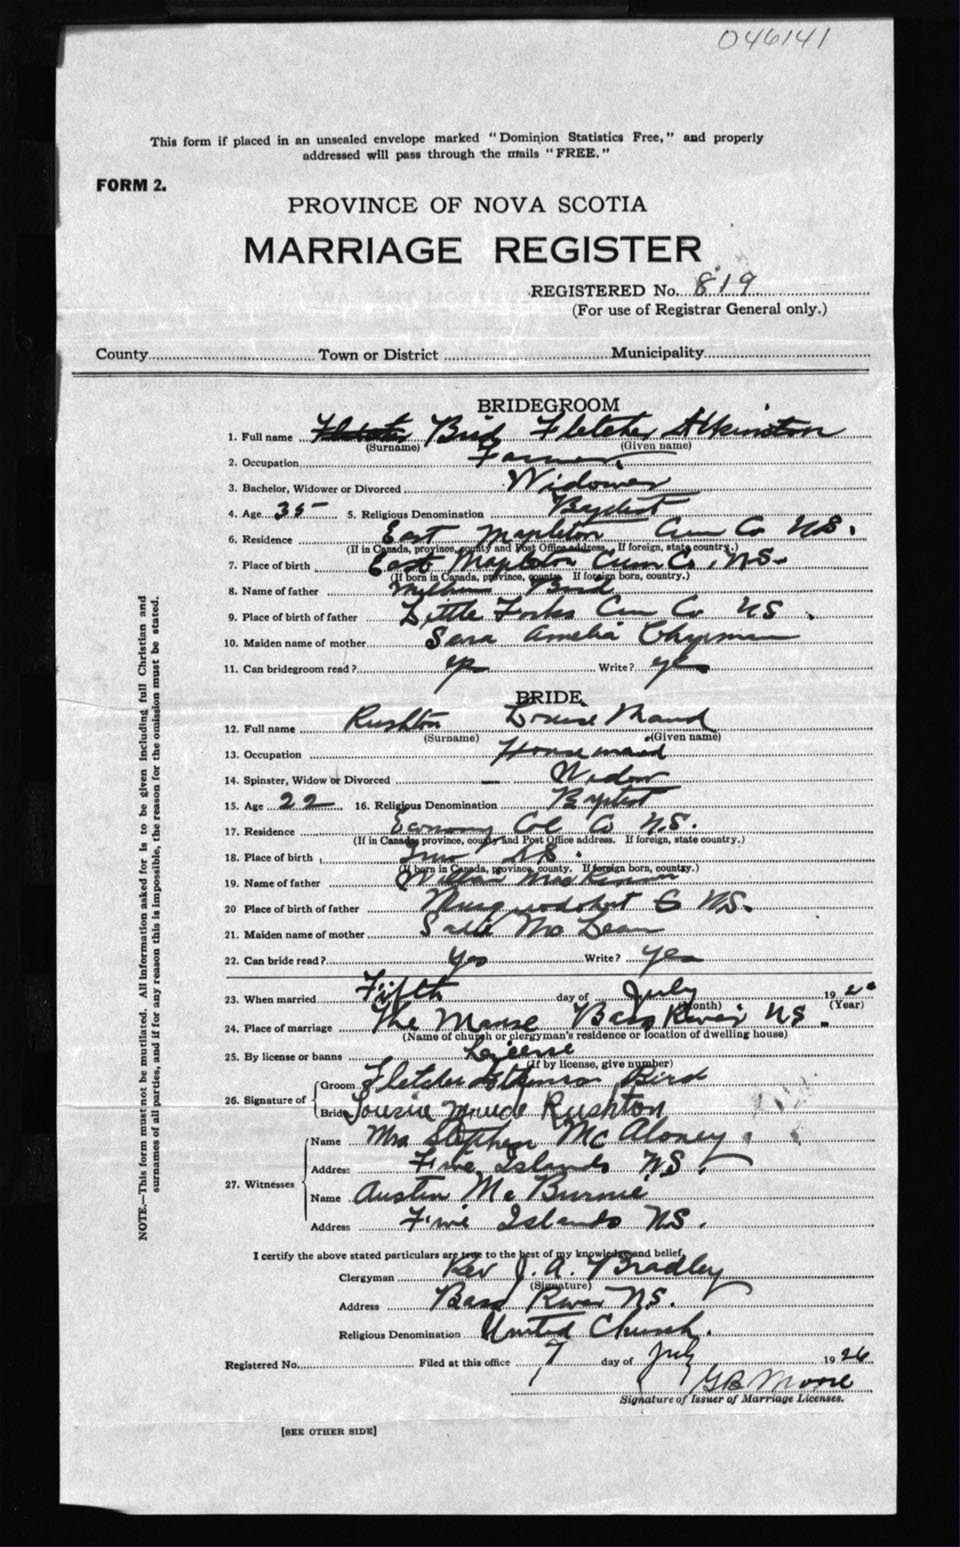 046141
This form if placed in an unsealed envelope marked "Dominion Statistics Free," and properly
addressed will pass through the mails "FREE."
FORM 2.
PROVINCE OF NOVA SCOTIA
MARRIAGE REGISTER
REGISTERED No. 819
(For use of Registrar General only.)
County Town or District Municipality
BRIDEGROOM
1. Full name Fletcher Bird Fletcher Atkinston
(Surname) (Given name)
2. Occupation Farmer
3. Bachelor, Widower or Divorced Widower
4. Age 35 5. Religious Denomination Baptist
6. Residence East Mapleton Cum Co N.S.
(If in Canada, province, county and Post Office address. If foreign, state country.)
7. Place of birth East Mapleton Cum Co. N.S.
(If born in Canada, province, county. If foreign born, country.)
8. Name of father Bird
9. Place of birth of father Little Forks Cum Co NS
10. Maiden name of mother Sara Amelia Chapman
11. Can bridegroom read? yes Write? yes
BRIDE
12. Full name Rushton Louise Maud
(Surname) (Given name)
13. Occupation House maid
14. Spinster, Widow or Divorced Widow
15. Age 22 16. Religious Denomination Baptist
17. Residence Economy Col Co N.S.
(If in Canada, province, county and Post Office address. If foreign, state country.)
18. Place of birth N.S.
(If born in Canada, province, county. If foreign born, country.)
19. Name of father William
20 Place of birth of father Musquodoboit N.S.
21. Maiden name of mother Mc Lean
22. Can bride read? Yes Write? Yes
23. When married Fifth day of July 19
(Month) (Year)
24. Place of marriage The Manse Bass River NS.
(Name of church or clergyman's residence or location of dwelling house)
25. By license or banns License
(If by license, give number)
26. Signature of Groom Fletcher Atkinson Bird
Bride Lousie Maude Rushton
27. Witnesses Name Mrs Stephen McAloney
Address Five Islands NS.
Name Austin McBurnie
Address Five Islands N.S.
I certify the above stated particulars are true to the best of my knowledge and belief.
Clergyman Rev J. A. Bradley
(Signature)
Address Bass River N.S.
Religious Denomination United Church.
Registered No. Filed at this office 7 day of July 1926
G B Moore
Signature of Issuer of Marriage Licenses.
[SEE OTHER SIDE]
NOTE.—This form must not be mutilated. All information asked for is to be given including full Christian and
surnames of all parties, and if for any reason this is impossible, the reason for the omission must be stated.